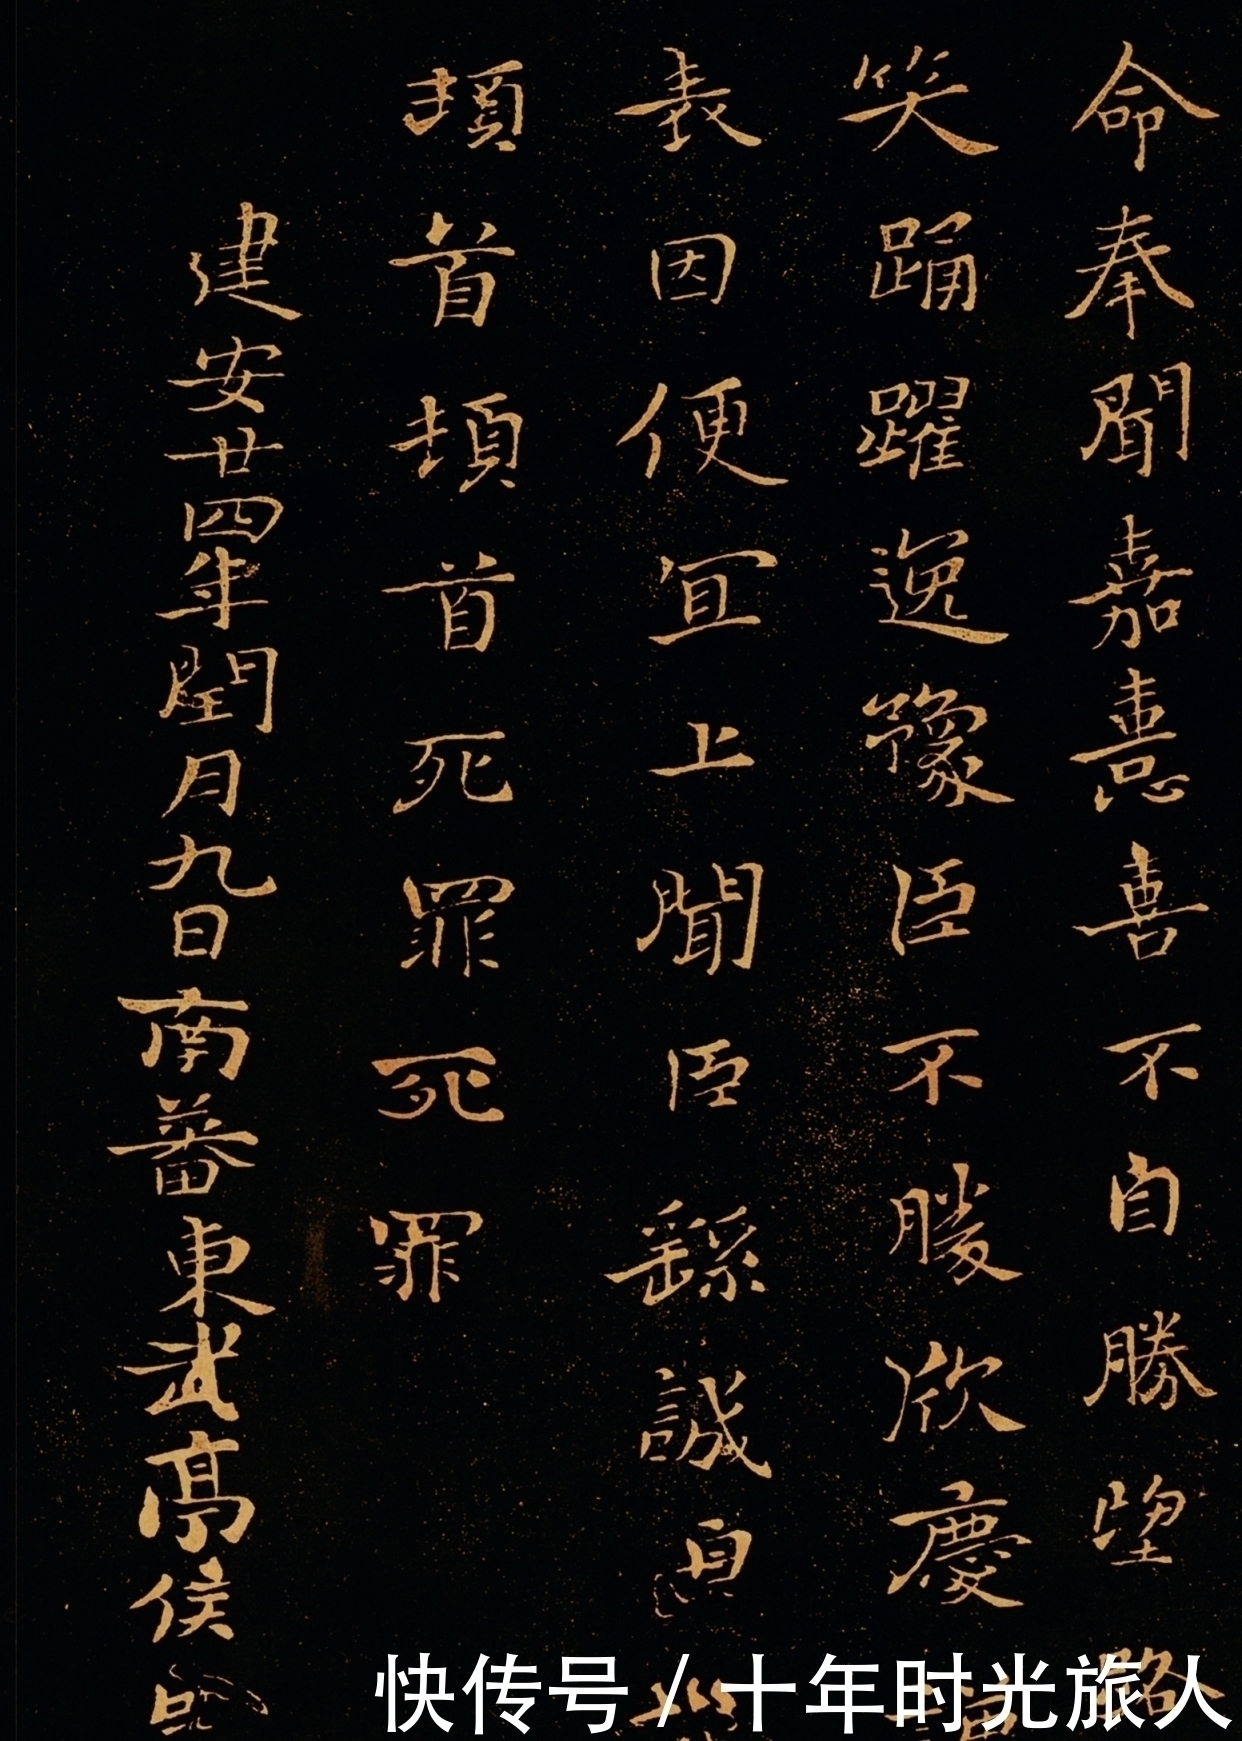 命奉聞嘉憙喜不自勝望路
笑踊躍逸豫臣不勝欣慶謹
表因便宜上聞臣繇誠
頓首頓首死罪死罪
建安廿四年閏月九日南蕃東武亭侯
快传号 / 十年时光旅人